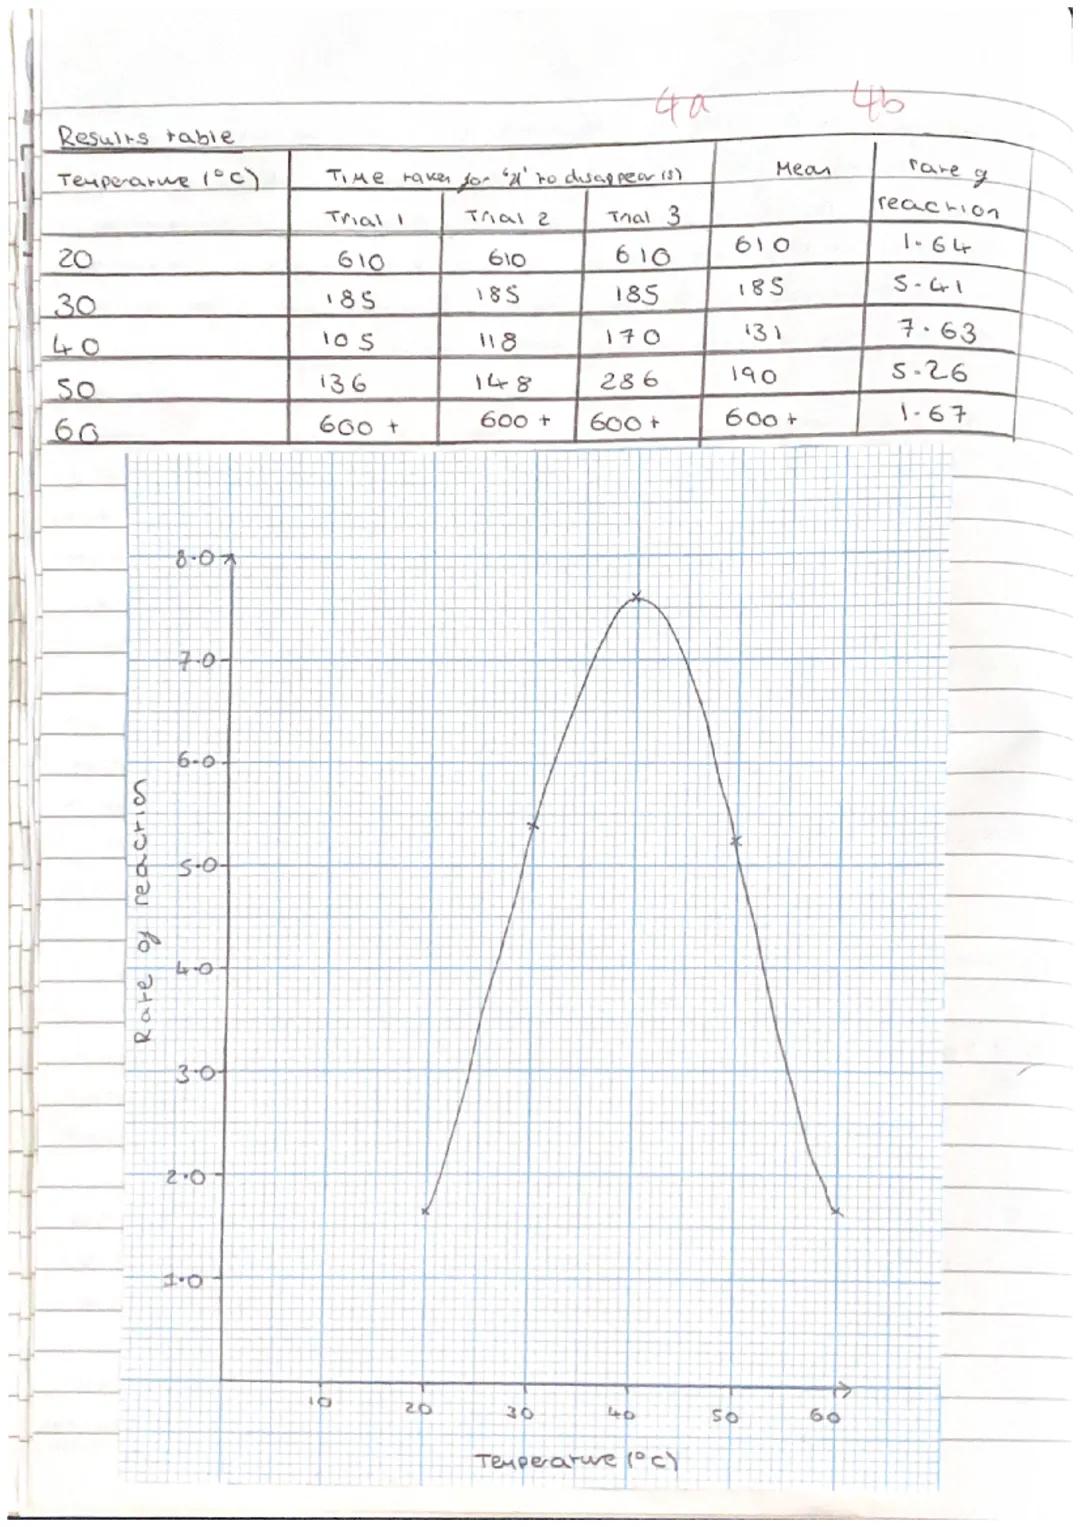 4a 4b
Results table
Temperature (°C) Time taken for 'x' to disappear (s) Mean rate of reaction
Trial 1 Trial 2 Trial 3
20 610 610 610 610 1.64
30 185 185 185 185 5.41
40 105 118 170 131 7.63
50 136 148 286 190 5.26
60 600+ 600+ 600+ 600+ 1.67
8.0
7.0
6.0
5.0
4.0
3.0
2.0
1.0
Rate of reaction
10 20 30 40 50 60
Temperature (°C)